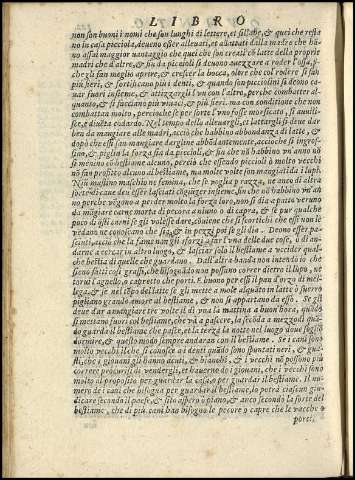 LIBRO
non son buoni i nomi che sun lunghi di lettere, et sillabe, & quei che resta
no in casa picciola, deueno esser alleuati, et alattati dalla madre che ha
no assai maggior uantaggio che quei che son creati cō latte della proprie
madri che d'altre, & fin da piccioli se deueno auezzare a roder l'ossa, p
che gli fan meglio aprire, & crescer la bocca, oltre che col rodere si fan
piu fieri, & fortificano piu i denti, & quando son piccolini si deono ca
uar fuori insieme, & attizzargli l'un con l'altro, perche combatter al
quanto, & si facciano piu uiuaci, & piu fieri, ma con conditione che non
combattan molto, percioche se per sorte l'uno fosse morsicato, si auilis-
se, & diuēta codardo. Nel tempo dello alleuargli, et lattargli si deue dar
ben da mangiare alle madri, accio che habbino abbondanza di latte, &
dopo che essi san mangiare dargline abbondantemente, acciochè si ingros-
sino, & piglin la forza fin da piccioli, & fin che nō habbino un'anno nō
se menino cō bestiame alcuno, perciò che essendo piccioli ò molto vecchi
nō fan profitto alcuno al bestiame, ma molte volte son mangiati da i lupi.
Niū mastino maschio ne femina, che si voglia di razza, ne anco di altra
sorte di cane deu esser lasciati cōgiūger insieme, fin che nō habbino vn'an
no perche vēgono a perder molto la forza loro, non si dia a patto veruno
da māgiare carne morta di pecora a niuno o di capra, & se pur qualche
poco di essi carni se gli volesse dare, cōuiene che si scortichi che essi non le
vedano ne conoscano che sia, & in pezzi poi se gli dia. Deono esser pa-
sciuti, acciò che la fame non gli sforzi a far l'vna delle due cose, ò di an-
darne a cercar in altro luogo, & lasciar solo il bestiame a vccider qual-
che bestia di quelle che guardano. Dall'altra banda non intendo io che
sieno fatti così grassi, che bisognādo non possano correr dietro il lupo, ne
torui l'agnello, ò capretto che porti. E buono per essi il pan d'orzo di meli
lega, & se nel tēpo dell'atte se gli mette a molle alquāto in latte ò siero
pigliano grande amore al bestiame, & non si appartano da esso. Se gli
deue dar a mangiare tre volte il dì vna la mattina a buon hora, quādo
si mettano fuori col bestiame, che và a pascere, la secōda a mezzodì quā
do guarda il bestiame che paste, et la terza la notte nel luogo doue sogliō
dormire, & questo modo sempre andaran con il bestiame. Se i cani sono
molto vecchi il che si conosce a i denti quādo sono spuntati neri, & guā-
sti, che i giouani gli hanno acuti, & bianchi, & i vecchi nō possono piu
correre procurisi di vendergli, et hauerne dei giouani, che i vecchi sono
molto al proposito per guardar la casa, & per guardar il bestiame. Il nu
mero de i cani che bisogna per guardar il bestiame, lo potrà ciascun giu-
dicare secondo il paese, & sito aspero o piano, & anco secondo la sorte del
bestiame, che di piu cani han bisogno le pecore o capre che le vacche o
porci,